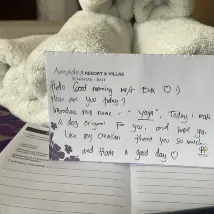 Amadea RESORT & VILLAS
SEMINYAK - BALI
Hello Good morning mr/s ♡ :)
How are you today?
Introduce my name is "yoga", Today i make
a dog origami For you, and hope you
like my creation. Thank you so much
and Have a good day ♡